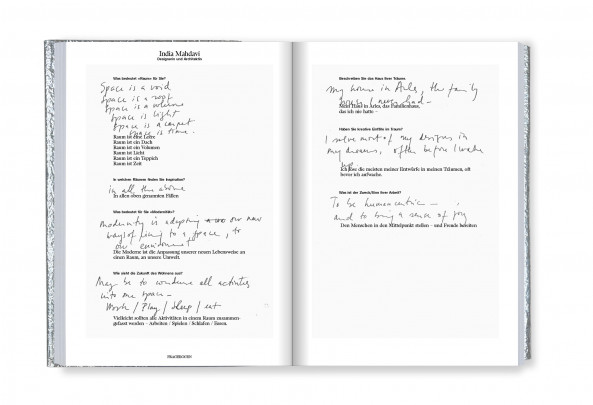 India Mahdavi
Designerin und Architektin
Was bedeutet «Raum» für Sie?
Space is a void
Space is a roof
Space is a volume
Space is light
Space is a carpet
Space is time.
Raum ist eine Leere
Raum ist ein Dach
Raum ist ein Volumen
Raum ist Licht
Raum ist ein Teppich
Raum ist Zeit
In welchen Räumen finden Sie Inspiration?
in all the above
In allen oben genannten Fällen
Was bedeutet für Sie «Modernität»?
Modernity is adapting our new
ways of living to a space, to
our environment
Die Moderne ist die Anpassung unserer neuen Lebensweise an
einen Raum, an unsere Umwelt.
Wie sieht die Zukunft des Wohnens aus?
May be to condense all activities
into one space –
Work / Play / Sleep / eat
Vielleicht sollten alle Aktivitäten in einem Raum zusammen-
gefasst werden – Arbeiten / Spielen / Schlafen / Essen.
FRAGEBOGEN
Beschreiben Sie das Haus Ihrer Träume
my house in Arles, the family
house I never had –
Mein Haus in Arles, das Familienhaus,
das ich nie hatte –
Haben Sie kreative Einfälle im Traum?
I solve most of my designs in
my dreams, often before I wake
up.
Ich löse die meisten meiner Entwürfe in meinen Träumen, oft
bevor ich aufwache.
Was ist der Zweck/Sinn Ihrer Arbeit?
To be humancentric –
and to bring a sense of joy
Den Menschen in den Mittelpunkt stellen – und Freude bereiten